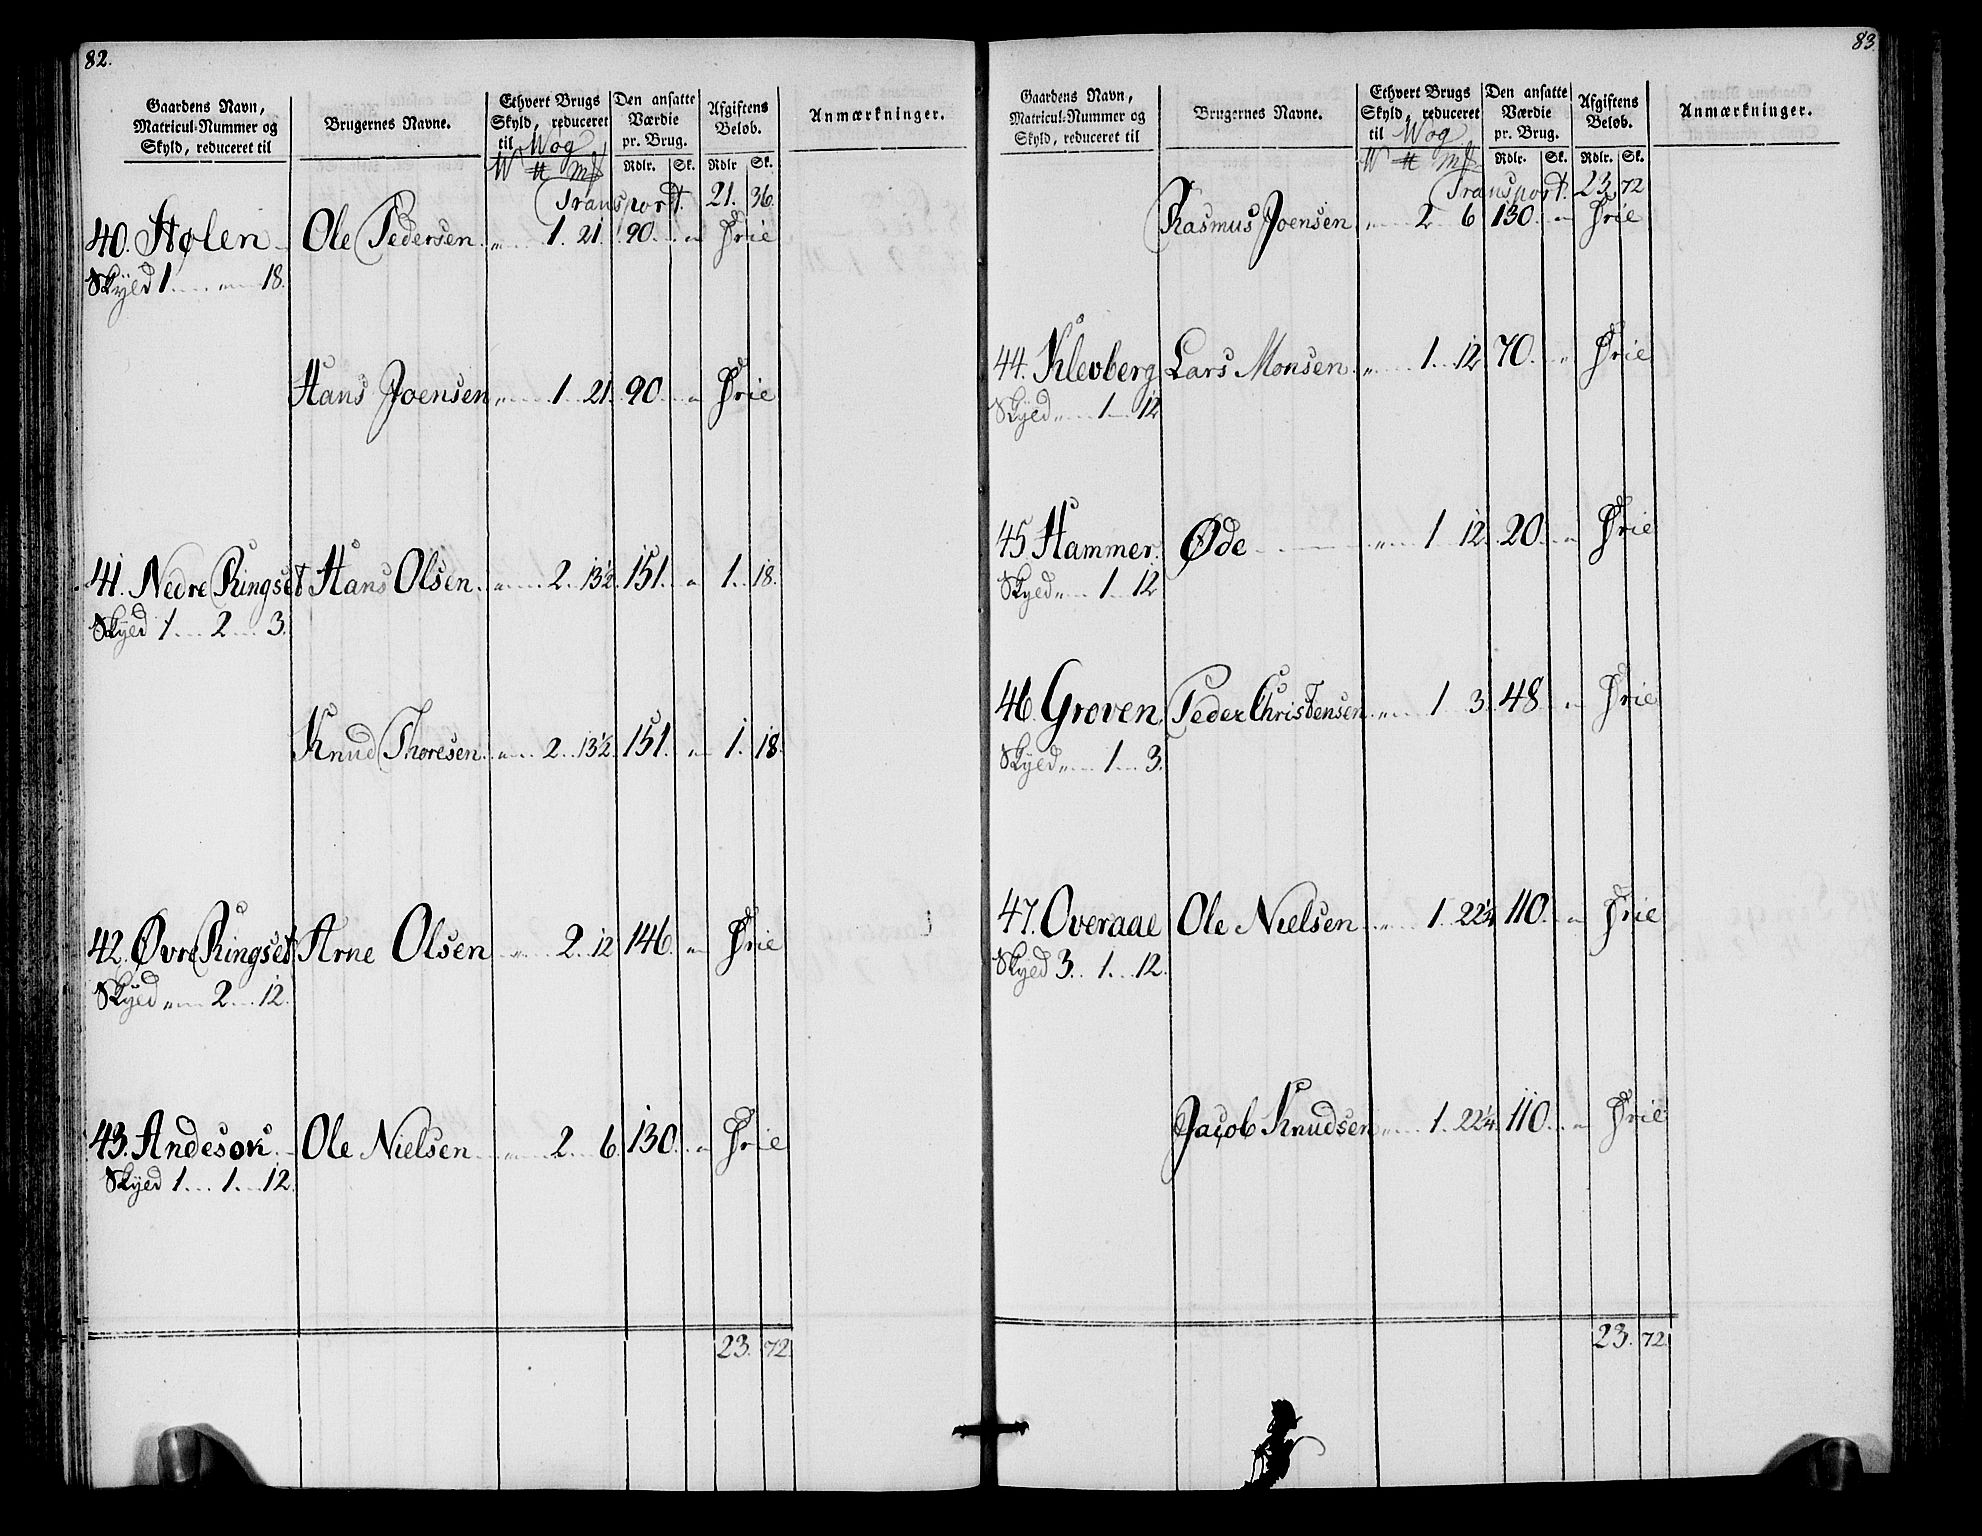 82.
Gaardens Navn, Matricul-Nummer og Skyld, reduceret til
Brugernes Navne.
Ethvert Brugs Skyld, reduceret til Wog
W ## m#
Den ansatte Værdie pr. Brug.
Rdlr. Sk.
Afgiftens Beløb.
Rdlr Sk.
Anmærkninger.
Transport. 21. 36.
40. Hølen Ole Pedersen „ 1. 21. 90. „ Frie
Skyld 1 „ 18.
Hans Joensen „ 1 21. 90. „ Frie
41. Nedre Ringset Hans Olsen „ 2. 13½. 151. „ 1. 18.
Skyld 1 2 3.
Knud Thoresen „ 2. 13½. 151. „ 1. 18.
42. Øvre Ringset Arne Olsen „ 2. 12 146. „ Frie
Skyld „ 2 12.
43. Andesok Ole Nielsen „ 2. 6. 130. „ Frie
Skyld 1 1 12.
23. 72.
83.
Gaardens Navn, Matricul-Nummer og Skyld, reduceret til
Brugernes Navne.
Ethvert Brugs Skyld, reduceret til Wog
W ## m#
Den ansatte Værdie pr. Brug.
Rdlr. Sk.
Afgiftens Beløb.
Rdlr. Sk.
Anmærkninger.
Transport. 23. 72
Rasmus Joensen „ 2 6 130. „ Frie
44. Klevberg Lars Monsen „ 1. 12 70. „ Frie
Skyld „ 1 12
45. Hammer. Øde „ 1 12. 20. „ Frie
Skyld „ 1 12
46. Groven Peder Christensen „ 1 3. 48. „ Frie
Skyld „ 1 3.
47. Overaae Ole Nielsen „ 1. 22¼ 110. „ Frie
Skyld 3. 1. 12.
Jacob Knudsen „ 1. 22¼ 110. „ Frie
23. 72.